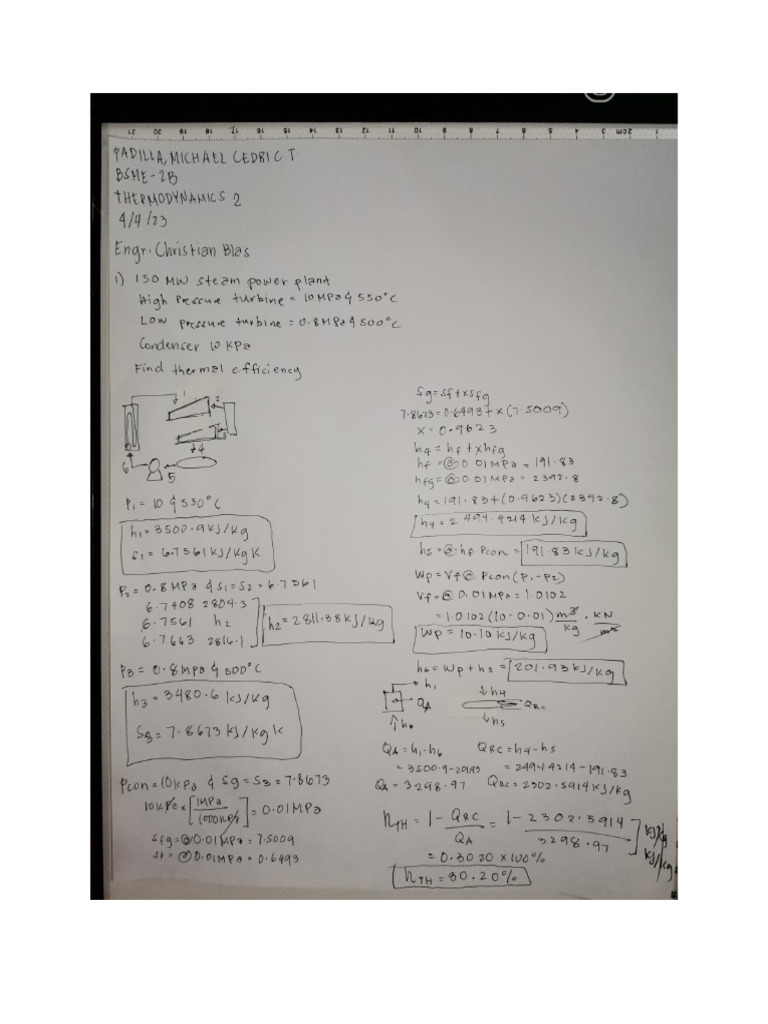 21 20 19 18 17 16 15 14 13 12 11 10 9 8 7 6 5 4 3 2cm 1
PADILLA, MICHAEL CEDRIC T.
BSME-2B
THERMODYNAMICS 2
4/4/23
Engr. Christian Blas
1) 150 MW steam power plant
High Pressure turbine = 10 MPa & 550°C
Low pressure turbine = 0.8 MPa & 500°C
Condenser 10 KPa
Find thermal efficiency
1 2
3
4
6
5
P1 = 10 & 550°C
h1 = 3500.9 KJ/kg
s1 = 6.7561 KJ/kg K
P2 = 0.8 MPa & S1 = S2 = 6.7561
6.7408 2804.3
6.7561 h2
6.7663 2816.1
h2 = 2811.38 KJ/kg
P3 = 0.8 MPa & 500°C
h3 = 3480.6 KJ/kg
S3 = 7.8673 KJ/kg K
Pcon = 10 KPa & Sg = S3 = 7.8673
10 KPa × [1 MPa / 1000 KPa] = 0.01 MPa
Sfg = @ 0.01 MPa = 7.5009
Sf = @ 0.01 MPa = 0.6493
Sg = Sf + xSfg
7.8673 = 0.6493 + x(7.5009)
x = 0.9623
h4 = hf + xhfg
hf = @ 0.01 MPa = 191.83
hfg = @ 0.01 MPa = 2392.8
h4 = 191.83 + (0.9623)(2392.8)
h4 = 2 494.4214 KJ/kg
h5 = @ hf Pcon = 191.83 KJ/kg
Wp = Vf @ Pcon (P1 - P2)
Vf = @ 0.01 MPa = 1.0102
= 1.0102 (10 - 0.01) m³/kg · KN/m²
Wp = 10.10 KJ/kg
h6 = Wp + h5 = 201.93 KJ/kg
h1 ↓h4
QA QRC
↑h6 ↓h5
QA = h1 - h6 QRC = h4 - h5
= 3500.9 - 201.93 = 2494.4214 - 191.83
QA = 3298.97 QRC = 2302.5914 KJ/kg
ηTH = 1 - QRC/QA = 1 - 2302.5914/3298.97 ] KJ/kg / KJ/kg
= 0.3020 × 100%
ηTH = 30.20%